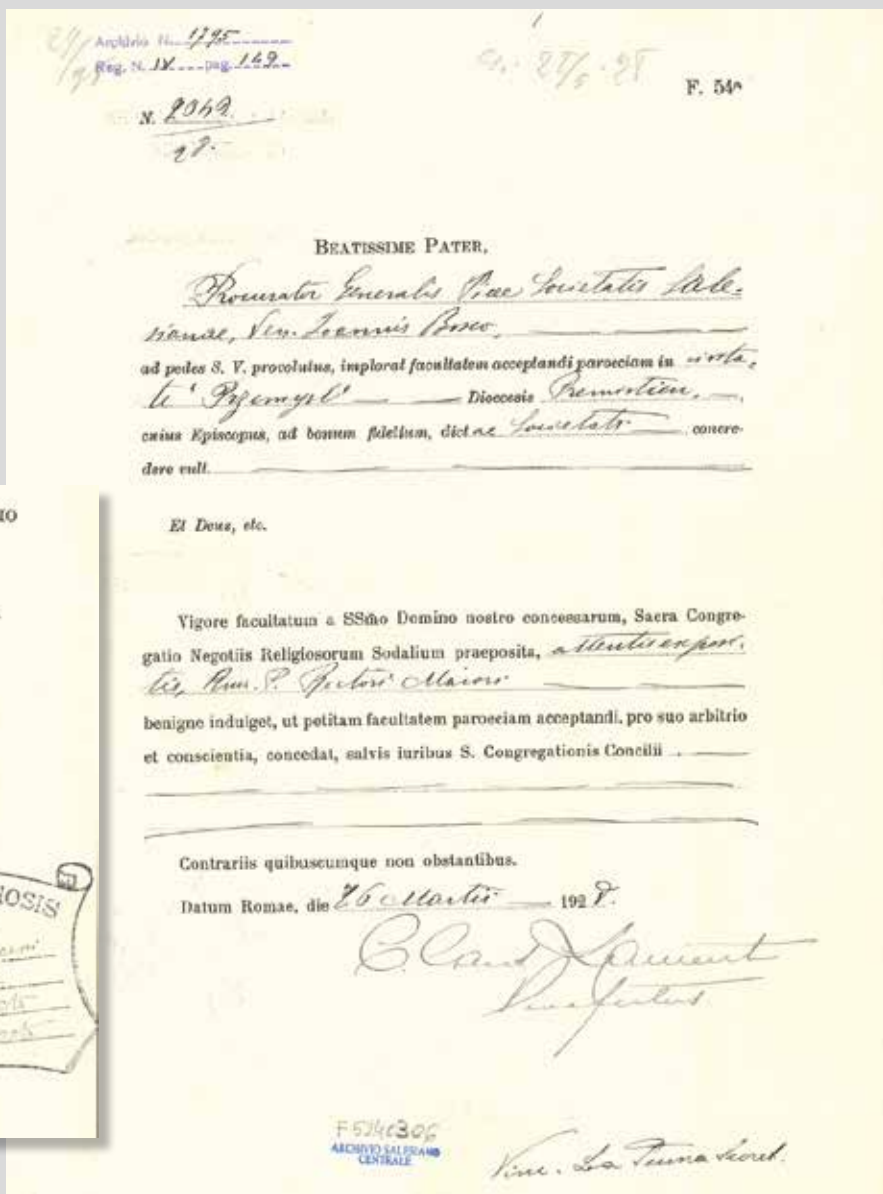 Archivio N. 1795
Reg. N. IV pag. 149
F. 54^
N. 2042
28.
BEATISSIME PATER,
Procurator Generalis Piae Societatis Sale-
sianae, Ven. Joannis Bosco,
ad pedes S. V. provolutus, implorat facultatem acceptandi paroeciam in civita-
te "Przemysl" Dioecesis Premislien.
cuius Episcopus, ad bonum fidelium, dictae Societati concre-
dere vult.
Et Deus, etc.
Vigore facultatum a SSmo Domino nostro concessarum, Sacra Congre-
gatio Negotiis Religiosorum Sodalium praeposita, attentis expos-
tis, Rmo. P. Rectori Maiori
benigne indulget, ut petitam facultatem paroeciam acceptandi, pro suo arbitrio
et conscientia, concedat, salvis iuribus S. Congregationis Concilii.
Contrariis quibuscumque non obstantibus.
Datum Romae, die 26 Martii 1928.
C. Card. Laurenti
Praefectus
ARCHIVIO SALESIANO
CENTRALE
Vinc. La Puma Secret.
IO
IOSIS